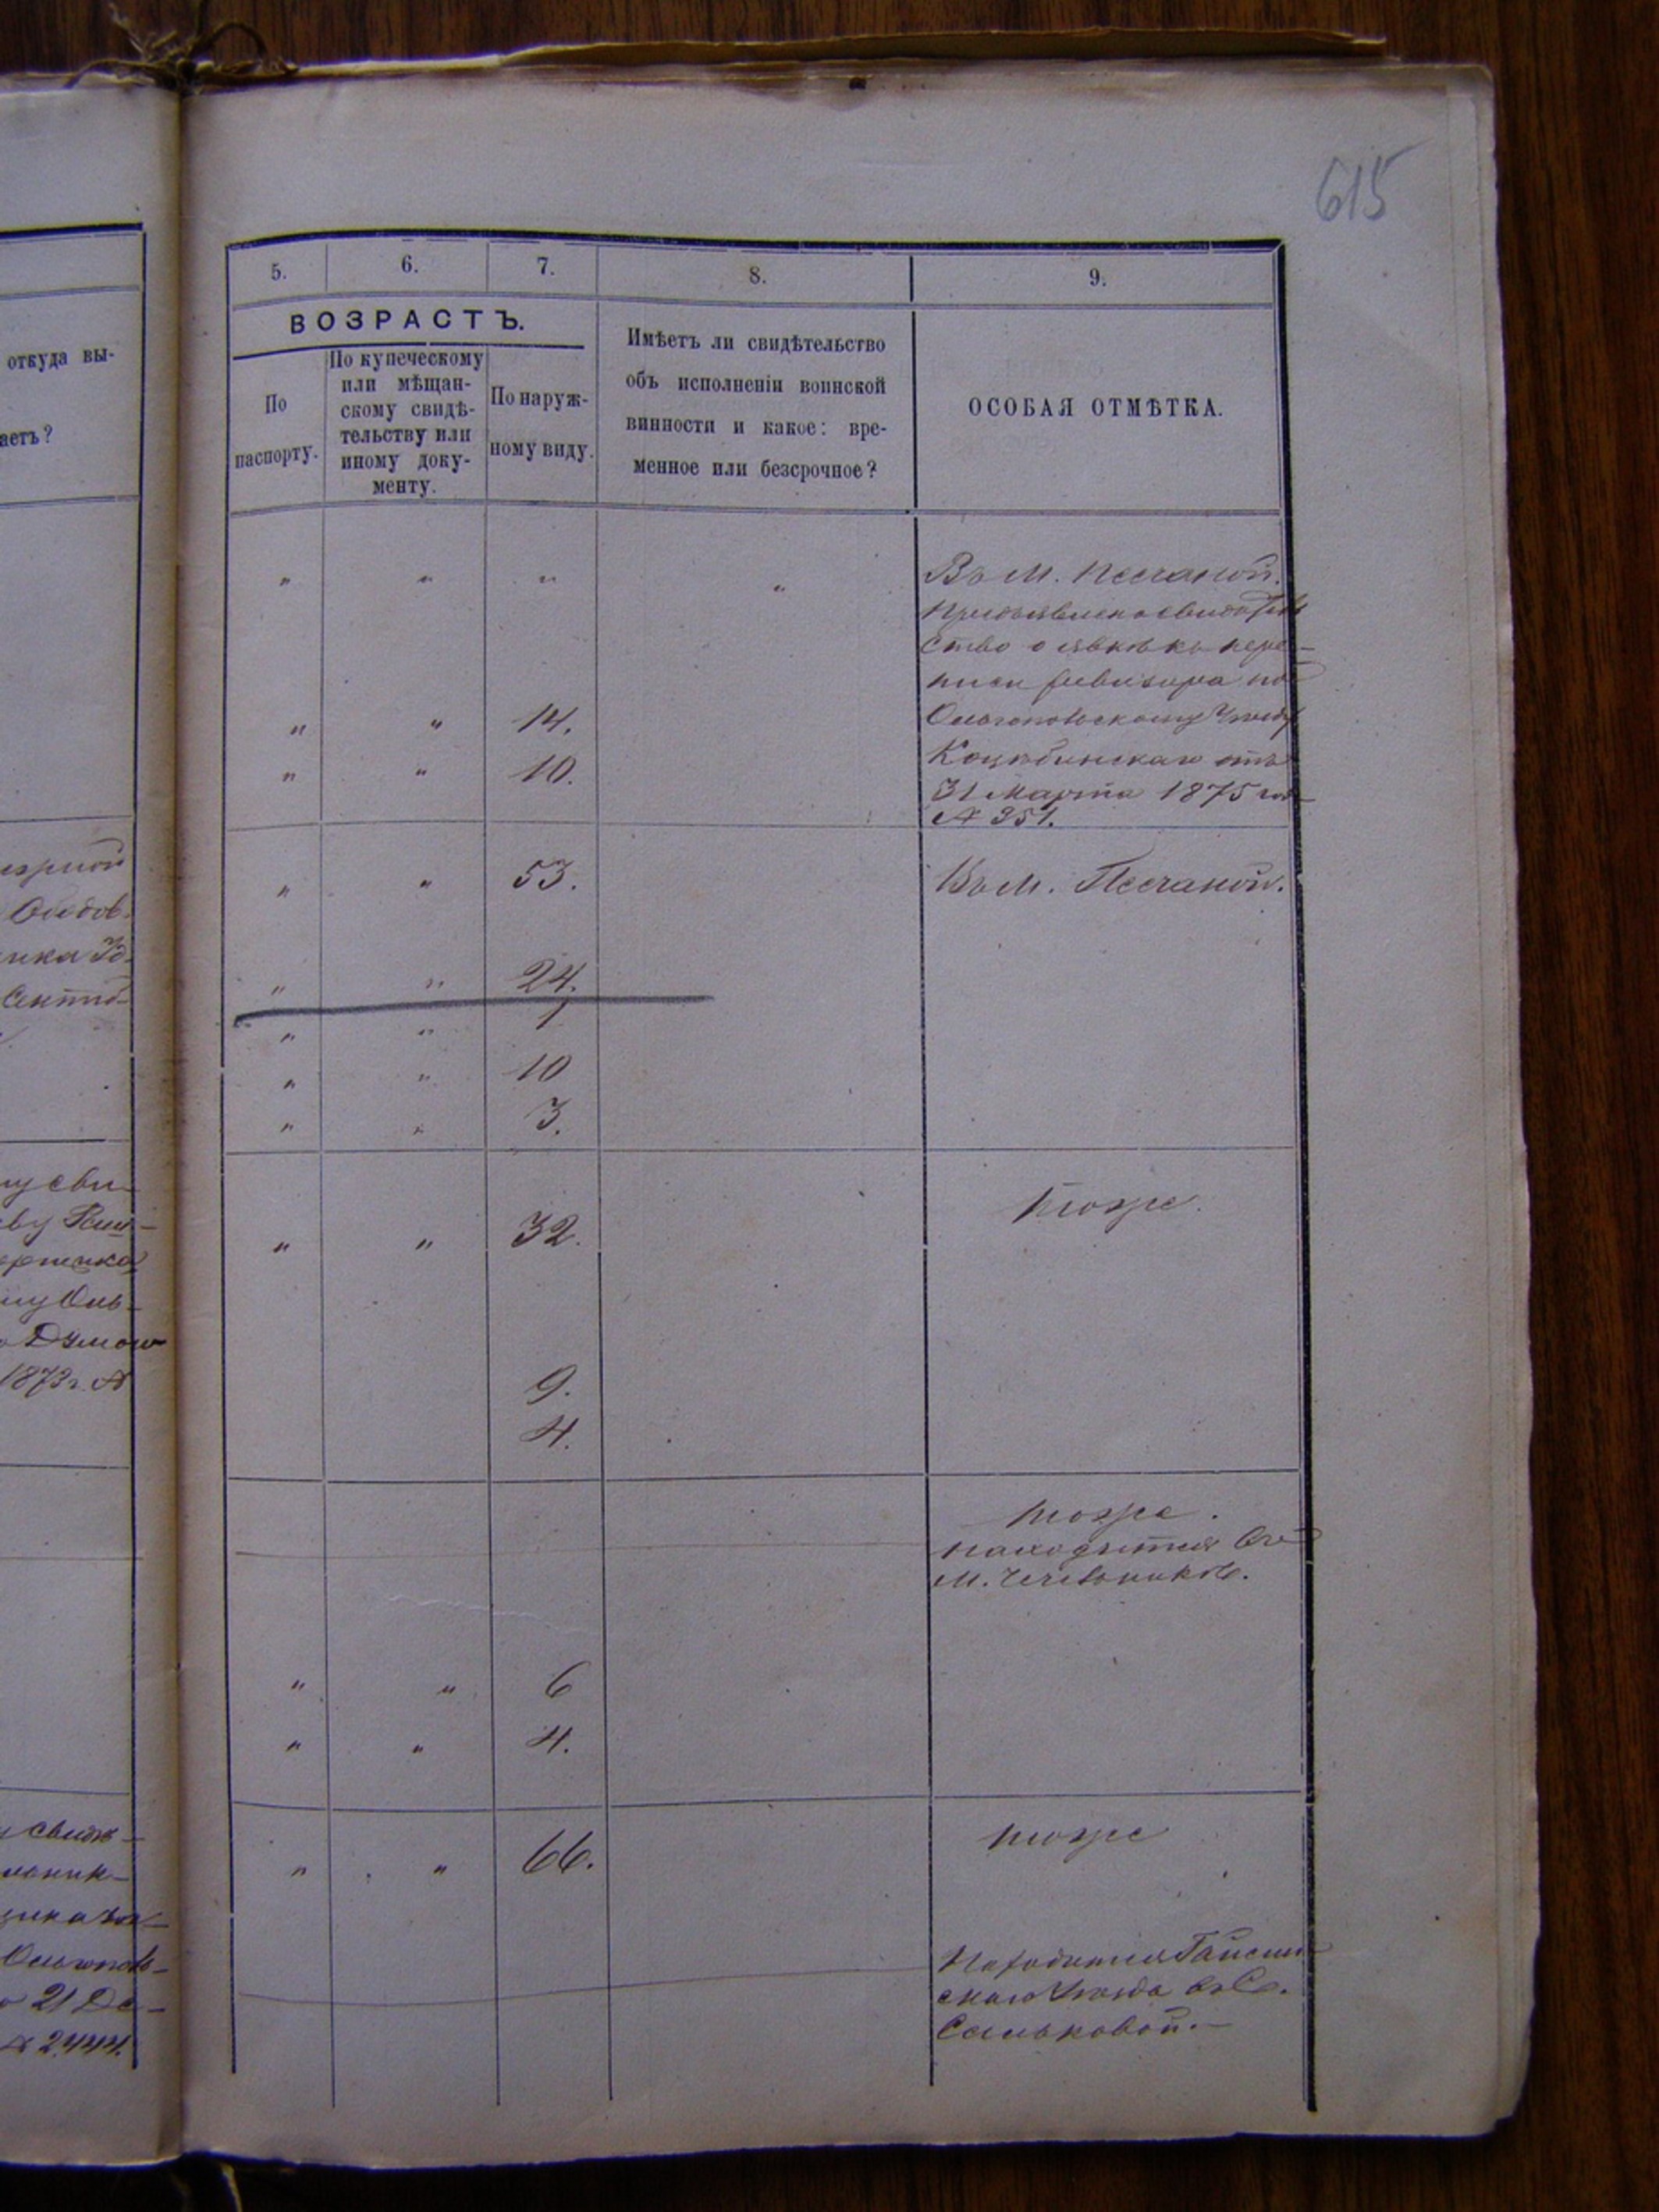 615
5. 6. 7. 8. 9.
ВОЗРАСТЪ.
По
паспорту.
По купеческому
или мѣщан-
скому свидѣ-
тельству или
иному доку-
менту.
По наруж-
ному виду.
Имѣетъ ли свидѣтельство
объ исполненіи воинской
винности и какое: вре-
менное или безсрочное?
ОСОБАЯ ОТМѢТКА.
откуда вы-
аетъ?
" " " " Въ М. Песчаной.
Предъявлено свидѣтель
ство о явкѣ къ пере-
писи ревизора по
" " 14. Ольгопольскому Уѣзду
" " 10. Коцюбинскаго отъ
31 Марта 1875 года
№ 351.
" " 53. Въ М. Песчаной.
" " 24.
" " 1
" " 10
" " 3.
" " 32. тоже.
9.
4.
тоже.
находится въ
М. Чечельникѣ.
" " 6
" " 4.
" " 66. тоже
Находится Гайсин
скаго Уѣзда въ С.
Сальковой.
Сентяб-
му Оль-
1873 г. №
у свидѣ-
Ольгополь-
21 Де-
№ 2444.